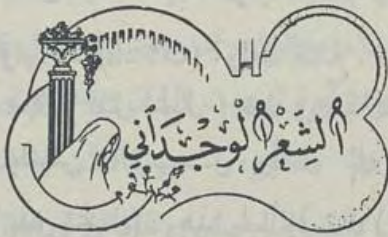 الشِّعْرُ الْوِجْدَاني